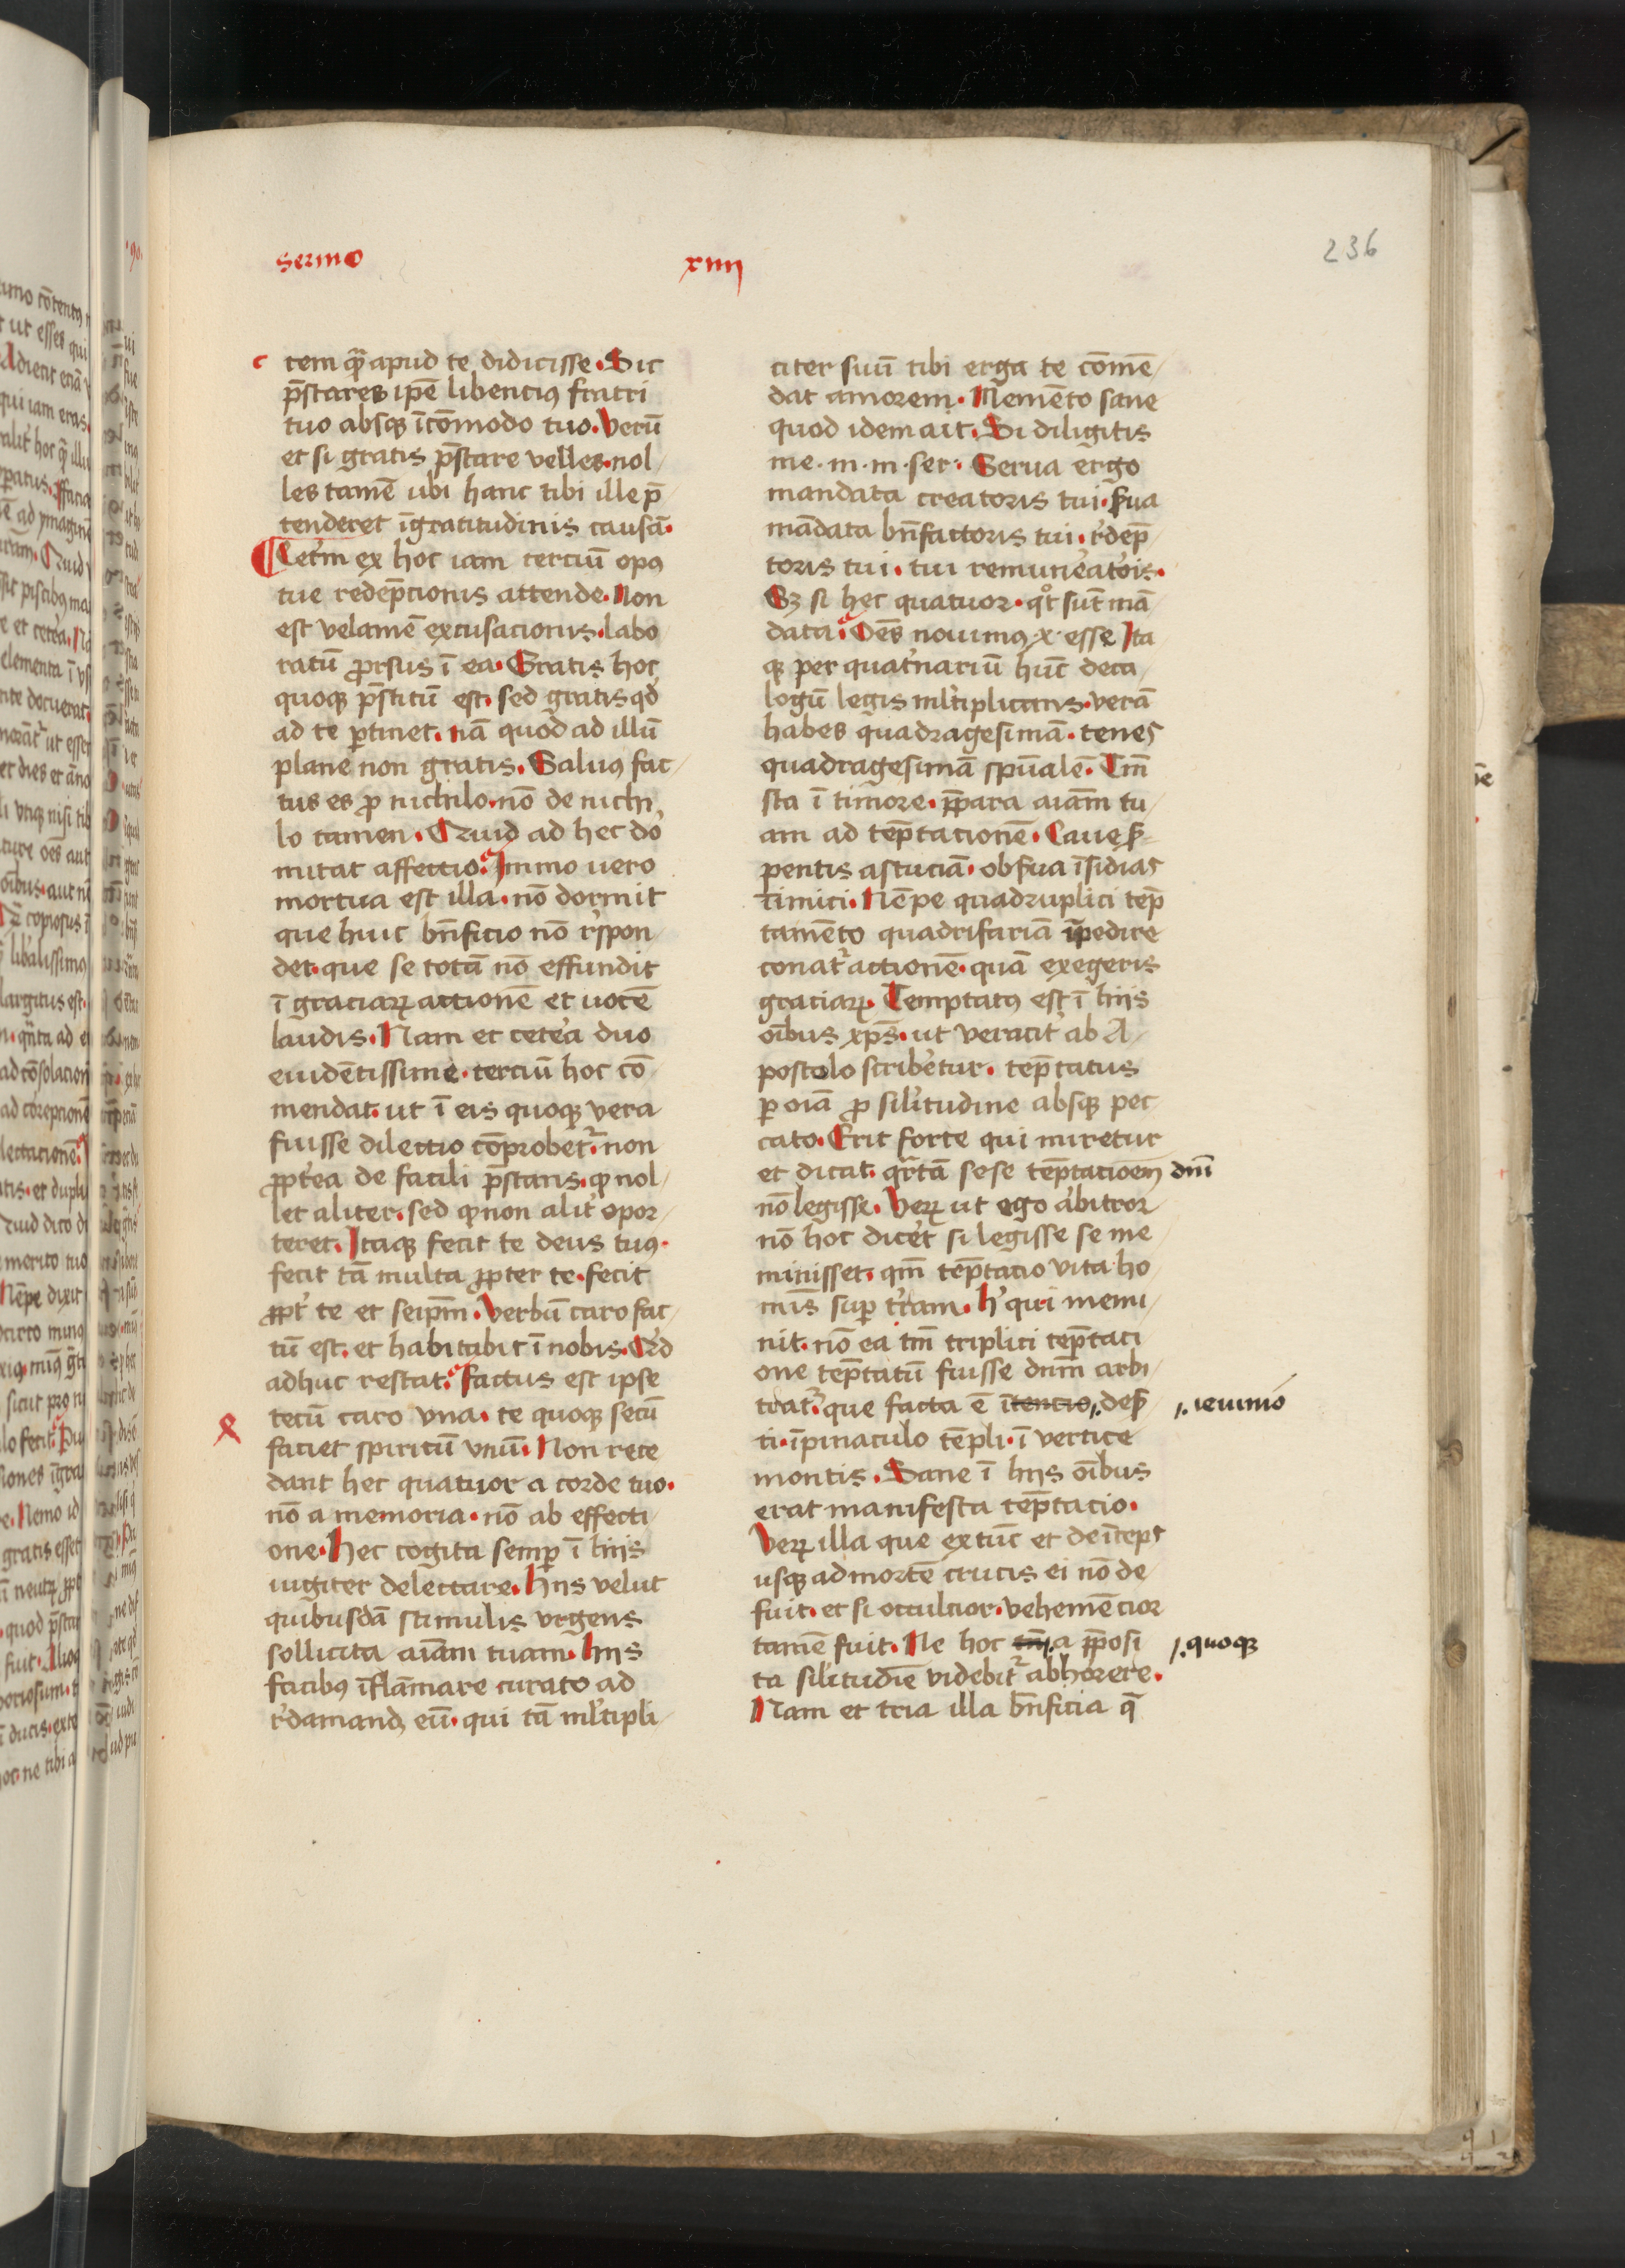 sermo xiiii
236
tem q̄ apud te didicisse. Sic
p̄stares ip̄e libencius fratri
tuo absq̨ īcōmodo tuo. Verū
et si gratis p̄stare velles. nol
les tamē ubi hanc tibi ille p̄
tenderet īgratitudinis causā.
Cetm̄ ex hoc iam terciū opꝰ
tue redēpcionis attende. Non
est velamē excusacionis. labo
ratū ꝓrsus ī ea. Gratis hoc
quoq̨ p̄stitū est. sed gratis qd̓
ad te ꝑtinet. nā quod ad illū
plane non gratis. Saluꝰ fac
tus es ꝓ nichilo. nō de nichi
lo tamen. Quid ad hec dor
mitat affectio. Immo uero
mortua est illa. nō dormit
que huic bn̄ficio nō r̓spon
det. que se totā nō effundit
ī graciaꝝ actionē et uocē
laudis. Nam et cet̓ea duo
euidētissime. terciū hoc cō
mendat. ut ī eis quoq̨ vera
fuisse dilectio cōprobet᷑. non
ꝓpt̓ea de facili p̄stans. ꝙ nol
let aliter. sed ꝙ non alit̓ opor
teret. Itaq̨ fecit te deus tuꝰ.
fecit tā multa ꝓpter te. fecit
ꝓpt̓ te et seip̄m. Verbū caro fac
tū est. et habitabit ī nobis. Qd̓
adhuc restat. factus est ipse
tecū caro vna. te quoq̨ secū
faciet spiritū vnū. Non rece
dant hec quatuor a corde tuo.
nō a memoria. nō ab effecti
one. Hec cogita semꝑ ī hiis
iugiter delectare. Hiis velut
quibusdā stimulis vrgens
sollicita aīam tuam. Hiis
facibꝰ īflāmare curato ad
r̓damandꝫ eū. qui tā ml̓tipli
citer suū tibi erga te cōmē
dat amorem. Memēto sane
quod idem ait. Si diligitis
me. m. m. ser. Serua ergo
mandata creatoris tui. ẜua
mādata bn̄factoris tui. r̓dēp
toris tui. tui remun̓eatōis.
Sꝫ si hec quatuor. qͦt sūt mā
data. Oēs nouimꝰ x. esse Ita
q̨ per quat̓nariū hūc deca
logū legis ml̓tiplicans. verā
habes quadragesimā. tenes
quadragesimā spūalē. Tm̄
sta ī timore. p̄para aīam tu
am ad tēptacionē. Caue ẜ
pentis astuciā. obẜua īsidias
īimici. Nēpe quadruplici tēp
tamēto quadrifariā īpedire
conat᷑ actionē. quā exegeris
graciaꝝ. Temptatꝰ est ī hiis
oībus xp̄s. ut veracit̓ ab A
postolo scrib̓etur. tēptatus
ꝑ oīa ꝓ sil̓itudine absq̨ pec
cato. Erit forte qui miretur
et dicat. q̄rtā sese tēptacioēm dn̄i
nō legisse. Veꝝ ut ego arbitror
nō hoc dic̓et si legisse se me
minisset. qm̄ tēptacio vita ho
mīs suꝑ t̓ram. Hͦ qui memi
nit. nō ea tm̄ triplici tēptaci
one tēptatū fuisse dn̄m arbi
trat᷑. que facta ē ītencio, deẜ ieiunio
ti. ī pinaculo tēpli. ī vertice
montis. Sane ī hiis oībus
erat manifesta tēptacio.
Veꝝ illa que ex tūc et deīceps
usq̨ ad mortē crucis ei nō de
fuit. et si occultior. vehemēcior
tamē fuit. Ne hoc a p̄posi quoq̨
ta sil̓itudīe videbit᷑ abhorrere.
Nam et tria illa bn̄ficia q̄